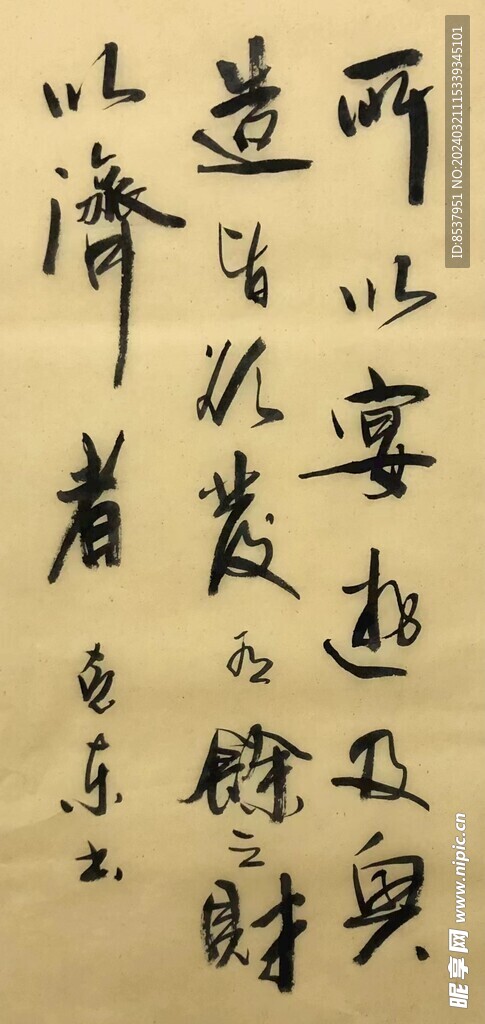 所以宴遊及興
造皆欲發有餘之財
以濟者
克東书
ID:8537951 NO:20240321115339345101
昵享网 www.nipic.cn